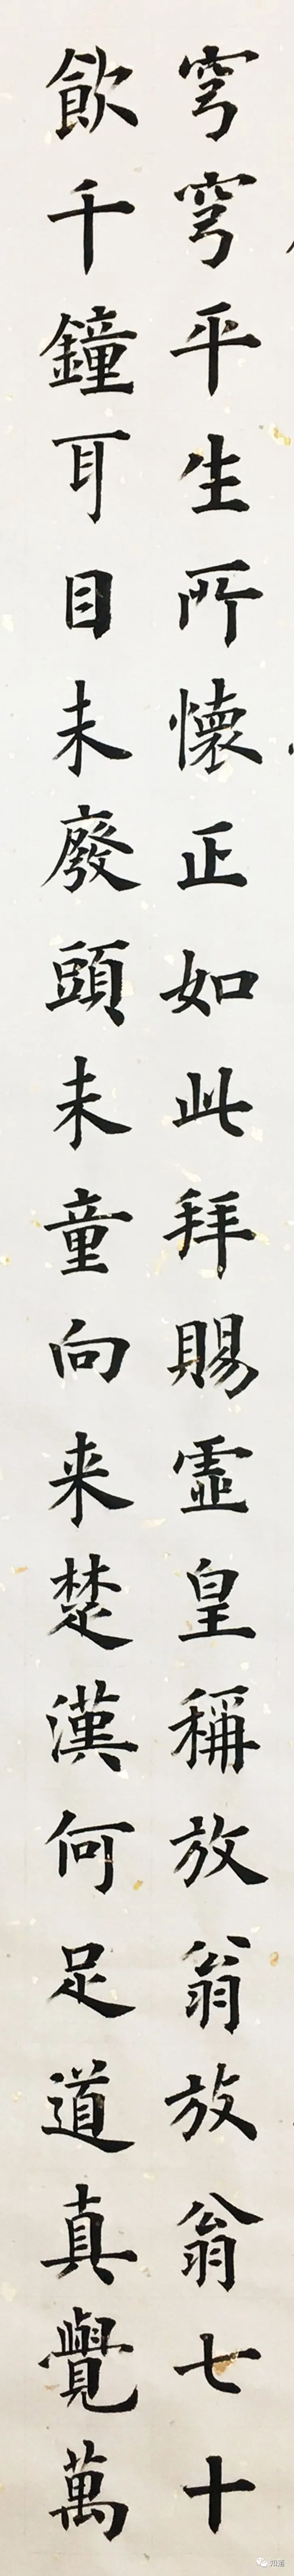 穹穹平生所懷正如此拜賜虛皇稱放翁放翁七十
飲千鐘耳目未廢頭未童向来楚漢何足道真覺萬